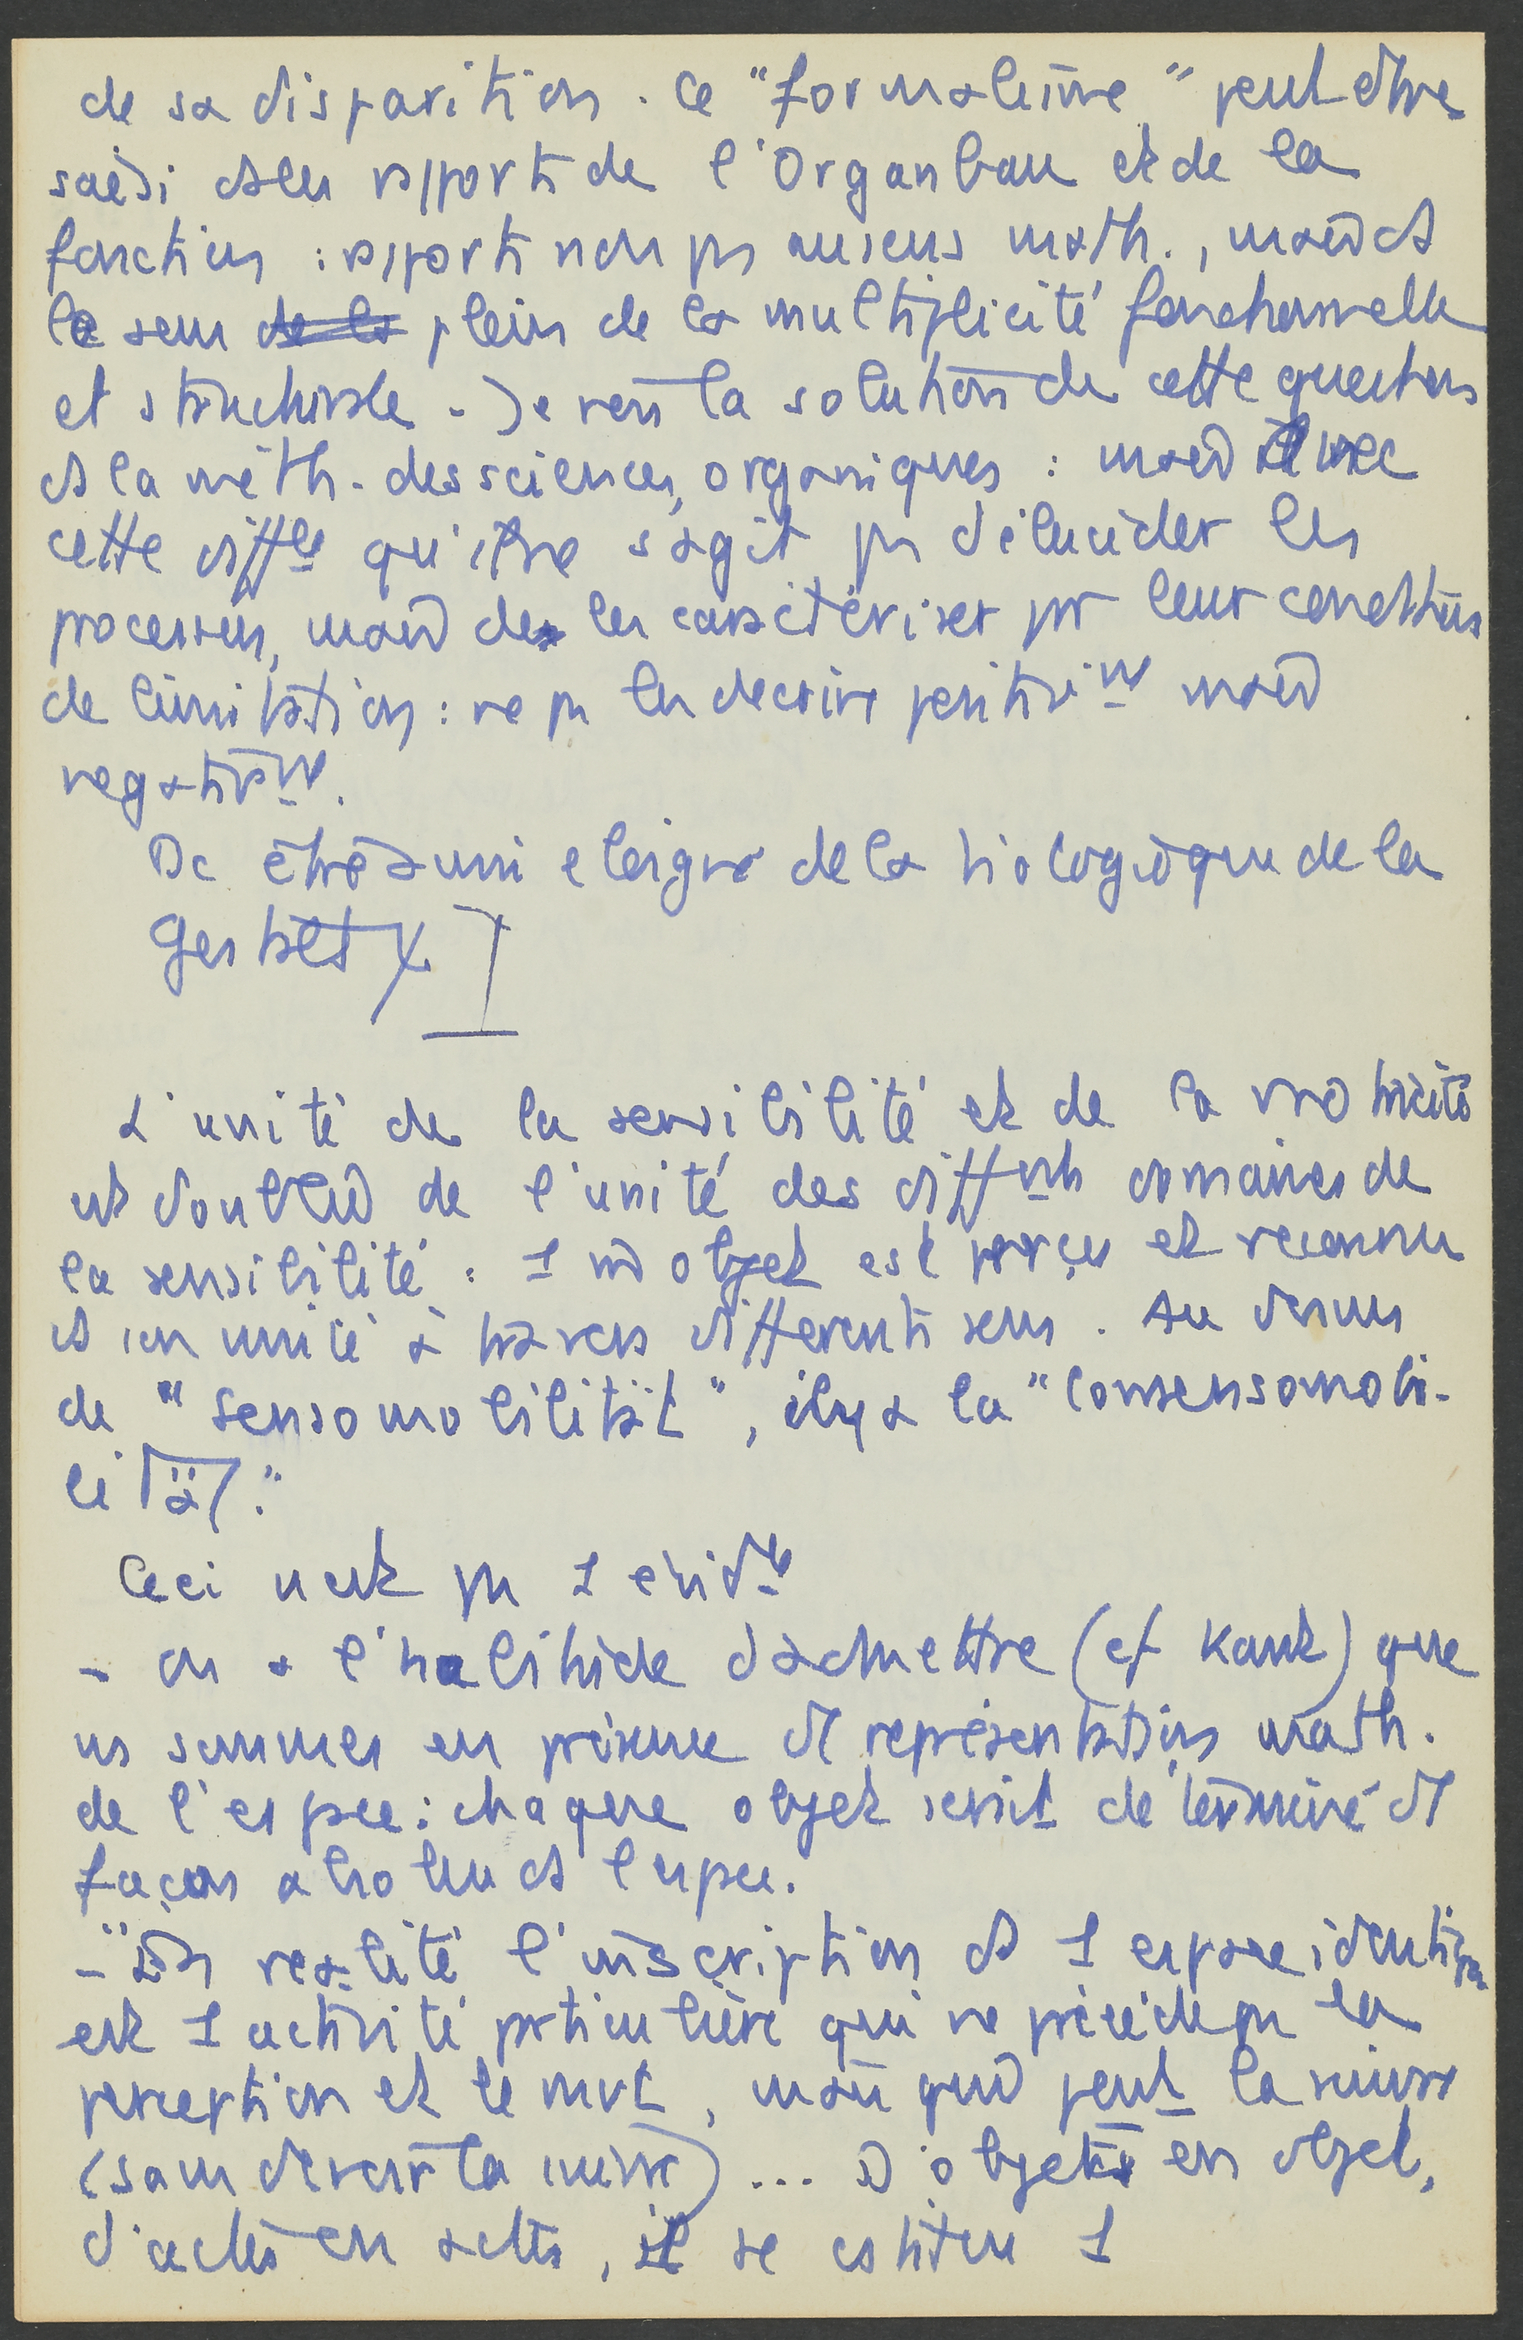 de sa disparition. Ce "formalisme" peut être
saisi ds les rapports de l'Organbau et de la
fonction : rapports non pas au sens math., mais ds
le sens de la plein de la multiplicité fonctionnelle
et structurale. De vers la solution de cette question
ds la méth. des sciences organiques : mais avec
cette diffce qu'il ne s'agit pas d'élucider les
processus, mais de les caractériser par leur conditions
de limitation : ne pas les décrire positivmt mais
négativmt.
Dc être aussi éloigné de la biologique de la
Gestalt
L'unité de la sensibilité et de la motricité
est doublée de l'unité des diffrnts domaines de
la sensibilité : 1 md objet est perçu et reconnu
ds son unité à travers différents sens. Au dessus
de "Sensomobilität", il y a la "Consensomobi-
lität".
Ceci n'est pas 1 évidce
- on a l'habitude d'admettre (cf Kant) que
ns sommes en présence d1 représentation math.
de l'espace : chaque objet serait déterminé d1
façon absolue ds l'espace.
- En réalité l'inscription ds 1 espace identique
est 1 activité particulière qui ne précède pas la
perception et le mvt, mais qui peut la suivre
(sans devoir la suivre) ... D'objet en objet,
d'actes en actes, il se constitue 1